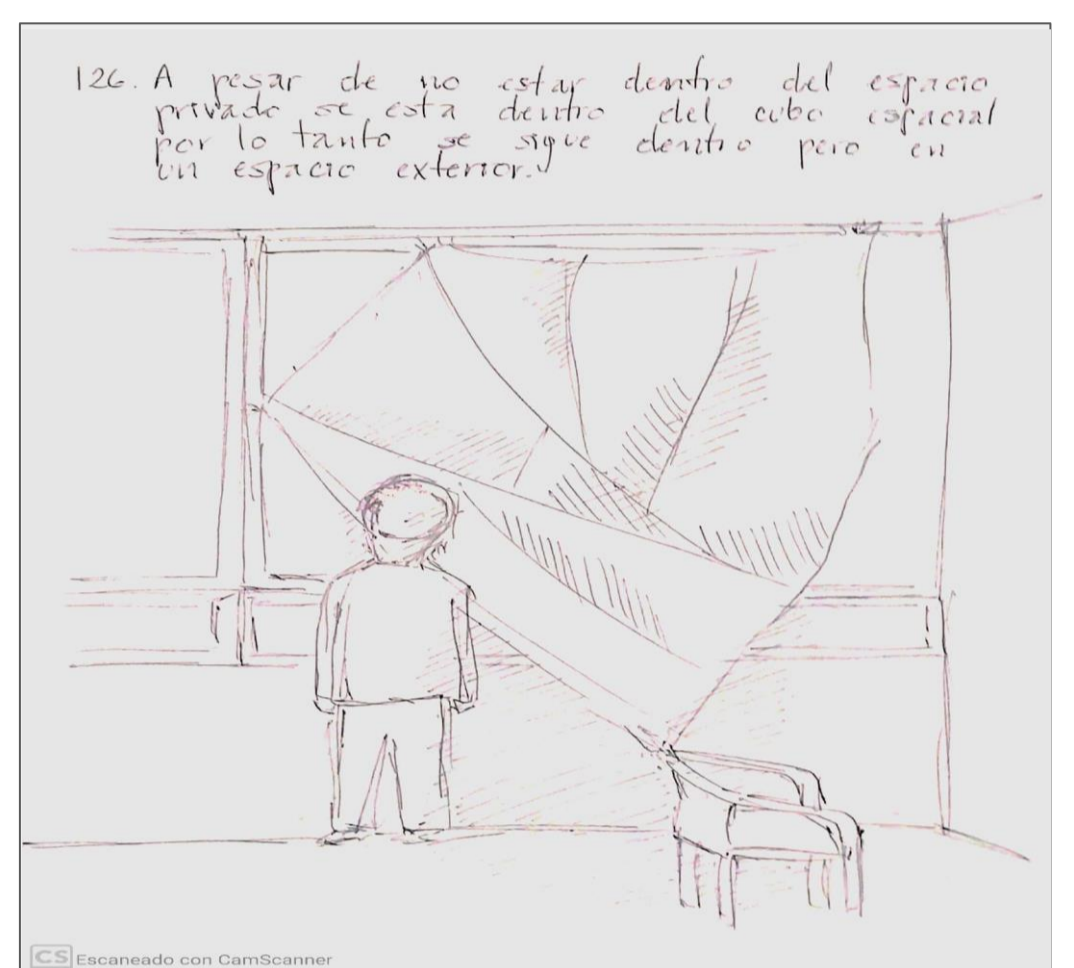 126. A pesar de no estar dentro del espacio
privado se esta dentro del cubo espacial
por lo tanto se sigue dentro pero en
un espacio exterior.
CS Escaneado con CamScanner